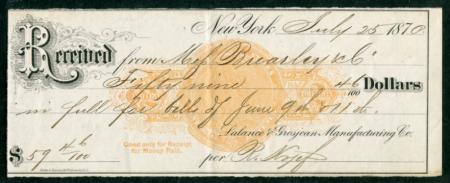 New York July 25 1870
Received from Messrs Brearley & Co
Fifty nine 46/100 Dollars
in full for bills of June 9th &
Lalance & Grosjean Manufacturing Co.
Good only for Receipt
for Money Paid.
$59 46/100 per